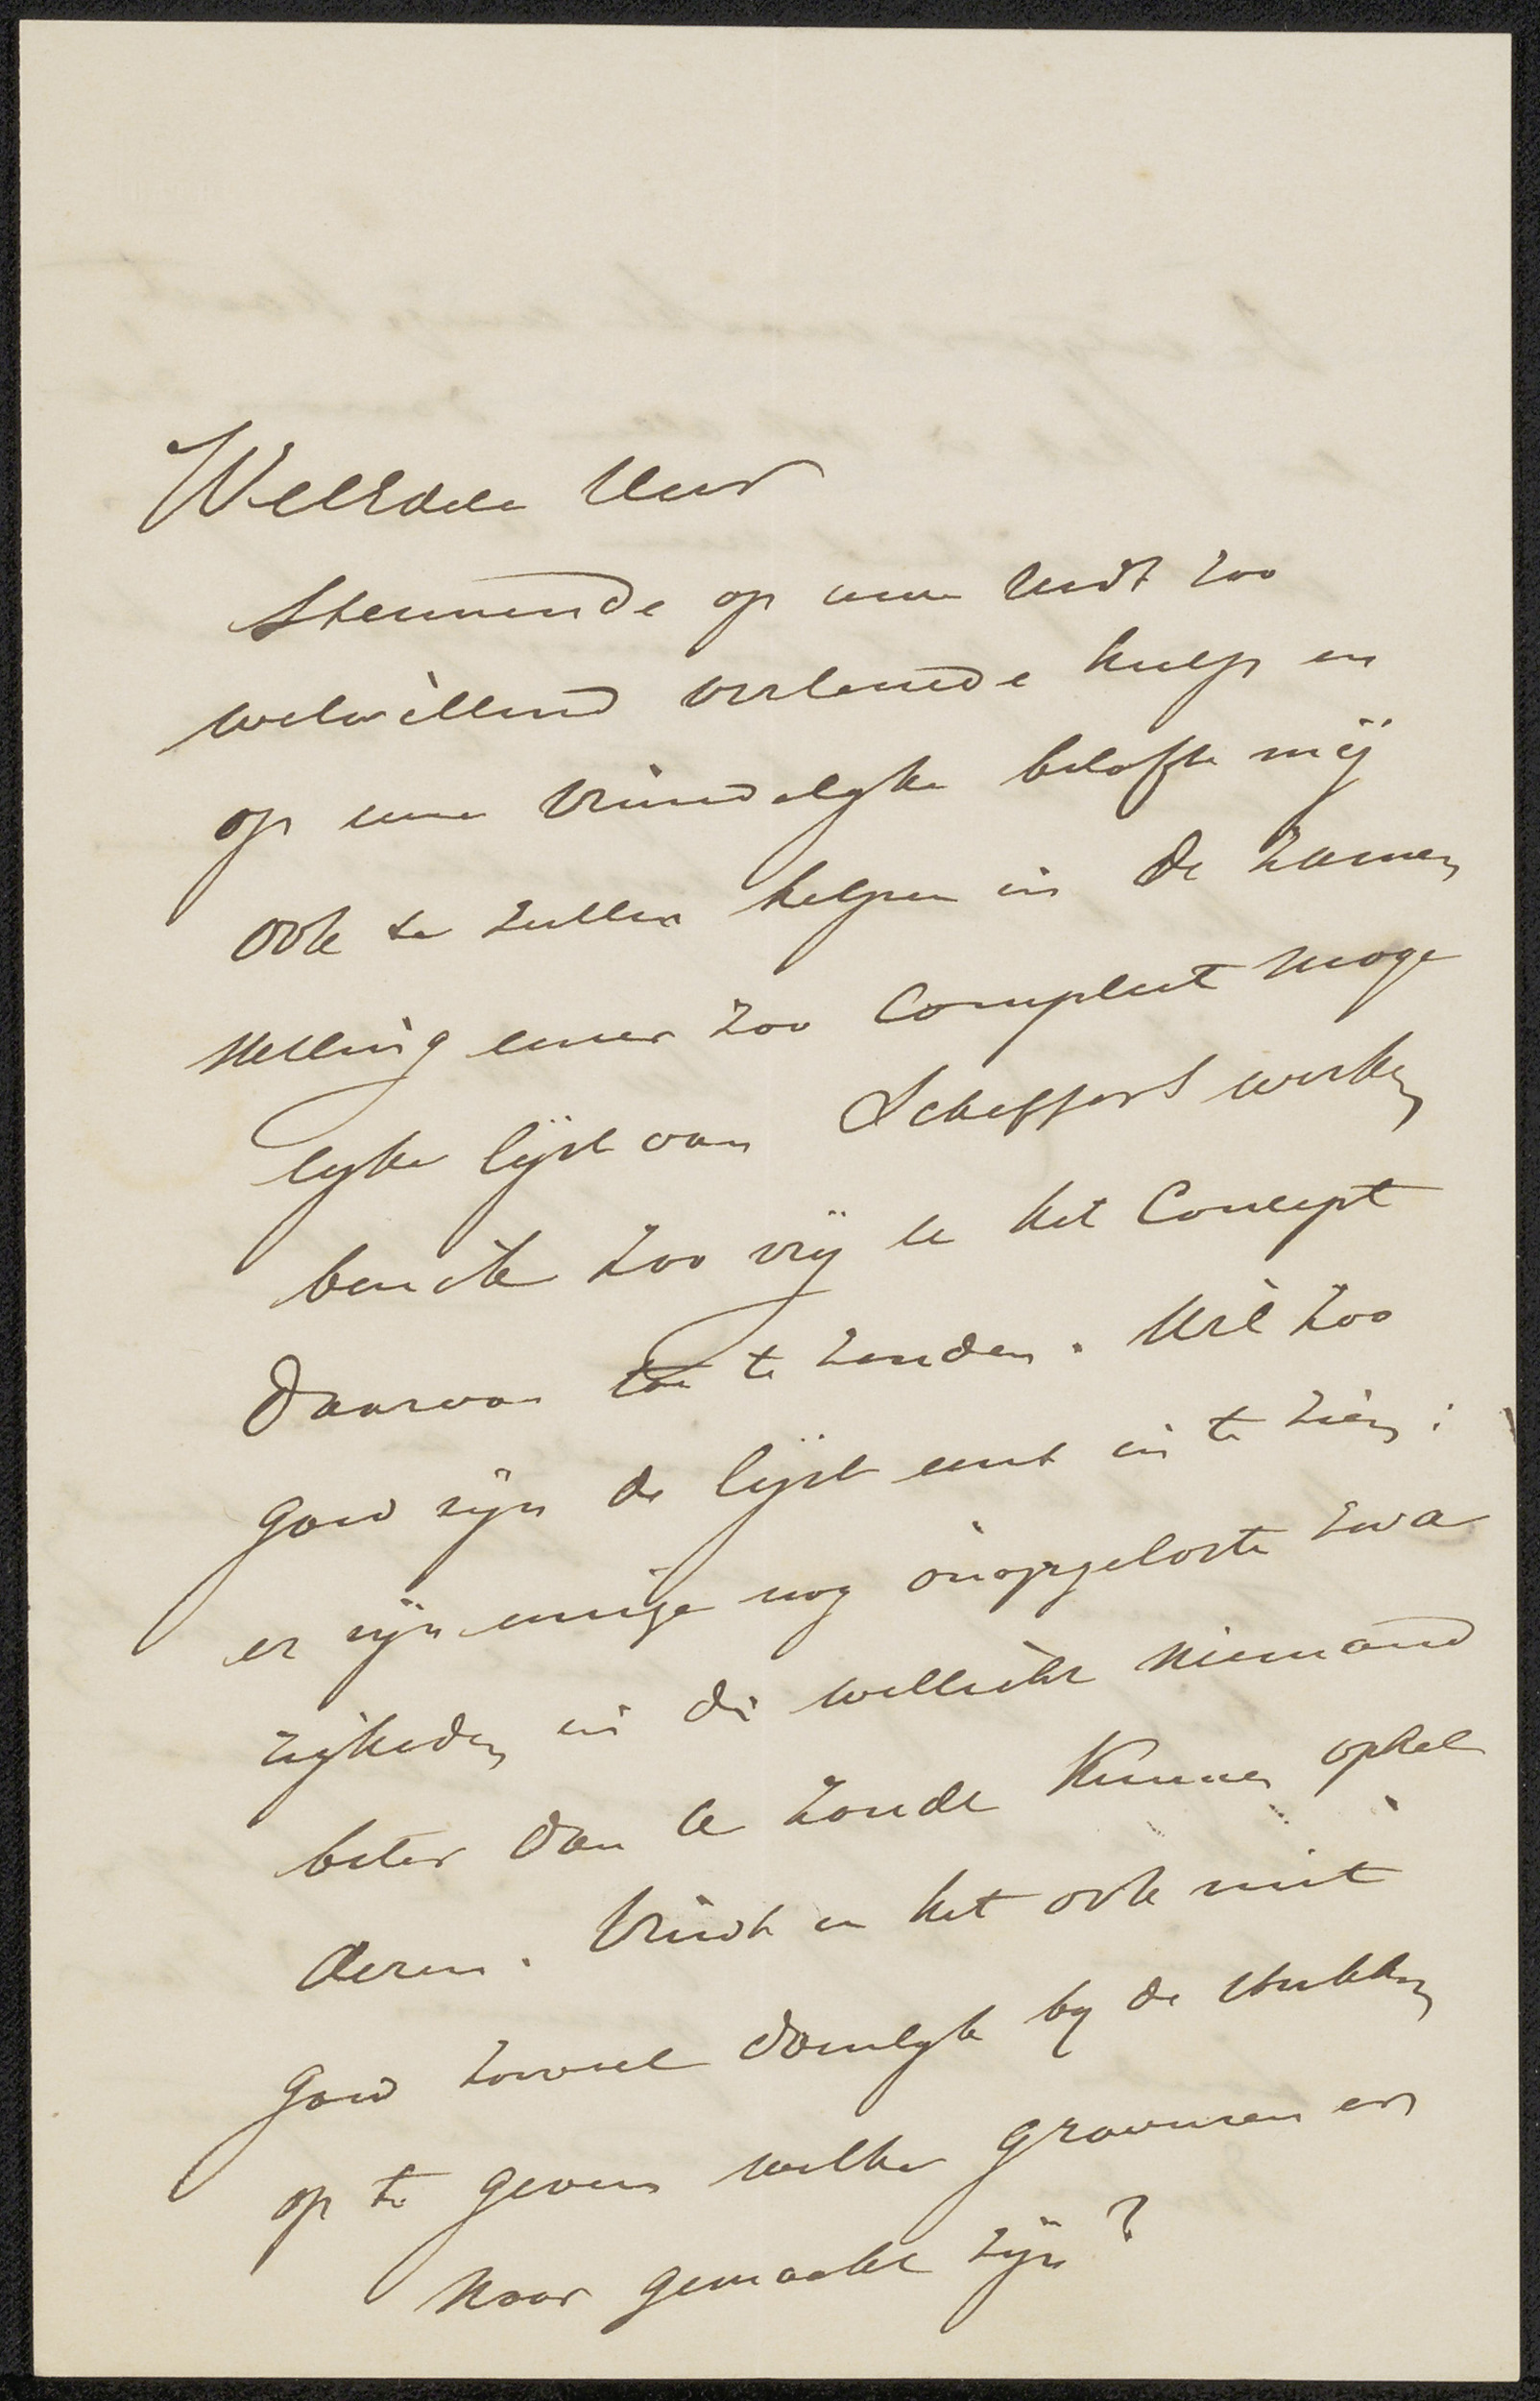 WelEdele Heer
Steunende op uwe reeds zoo
welwillend verleende hulp en
op uwe vriendelyke belofte mij
ook te zullen helpen in de zamen
stelling eener zoo Compleet moge
lyke lijst van Scheffers werken
ben ik zoo vrij U het Concept
daarvan toe te zenden. Wil zoo
goed zijn de lijst eens in te zien;
er zijn eenige nog onopgeloste zwa
righeden in die wellicht niemand
beter dan U zoude kunnen ophel
deren. Vindt U het ook niet
goed zooveel doenlyk by de stukken
op te geven welke gravuren er
naar gemaakt zijn?